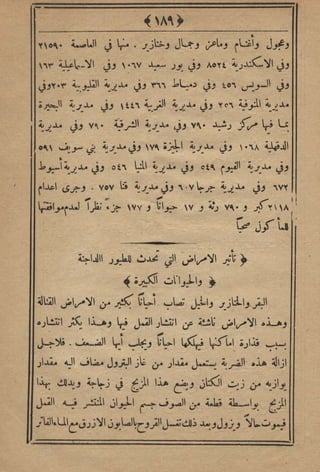 ﴿ ١٨٩ ﴾
وعجول وأغنام وماعز وجمال وخنازير . منها في العاصمة ٢١٥٩٠
وفي الاسكندرية ٨٥٢٤ وفي بور سعيد ١٠٦٧ وفي الاسماعيلية ١٦٣
وفي السويس ٤٥٦ وفي دمياط ٣٦٦ وفي مديرية القليوبية ٢٠٣ وفي
مديرية المنوفية ٢٥٦ وفي مديرية الغربية ١٤٤٦ وفي مديرية البحيرة
بما فيها مركز رشيد ٧٩٠ وفي مديرية الشرقية ٧٩٠ وفي مديرية
الدقهلية ١٠٦٨ وفي مديرية الجيزة ١٧٩ وفي مديرية بني سويف ٥٩١
وفي مديرية الفيوم ٥٤٩ وفي مديرية المنيا ٥٤٦ وفي مديرية أسيوط
٦٧٢ وفي مديرية جرجا ٦٠٧ وفي مديرية قنا ٧٥٧ . وجرى اعدام
٢١١٨ كبر و ٧٩٠ رئة و ١٧ حيواناً و ١٧٧ جزءً نظراً لعدم موافقتها
للمأكول صحياً
﴿ تأثير الامراض التي تحدث للطيور الداجنة
والحيوانات الكبيرة ﴾
البقر والخنازير والخيل تصاب أحياناً بكثير من الامراض القتالة
وهذه الامراض ناشئة عن انتشار القمل فيها وهذا يكثر انتشاره
بسبب قذارة اماكنها فيهلكها احياناً ويجلب أيها الضعف . فلاجل
ازالة هذه الضربة يستعمل مقدار من غاز البترول مضاف اليه مقدار
يوازيه من زيت الكتان ويضع هذا المزيج في زجاجة ويدلك بهذا
المزيج بواسطة قطعة من الصوف جسم الحيوان المنتشر فيه القمل
فيموت حالاً ويزول وبعد ذلك تغسل القروح بالصابون الازرق مع الماء الفاتر